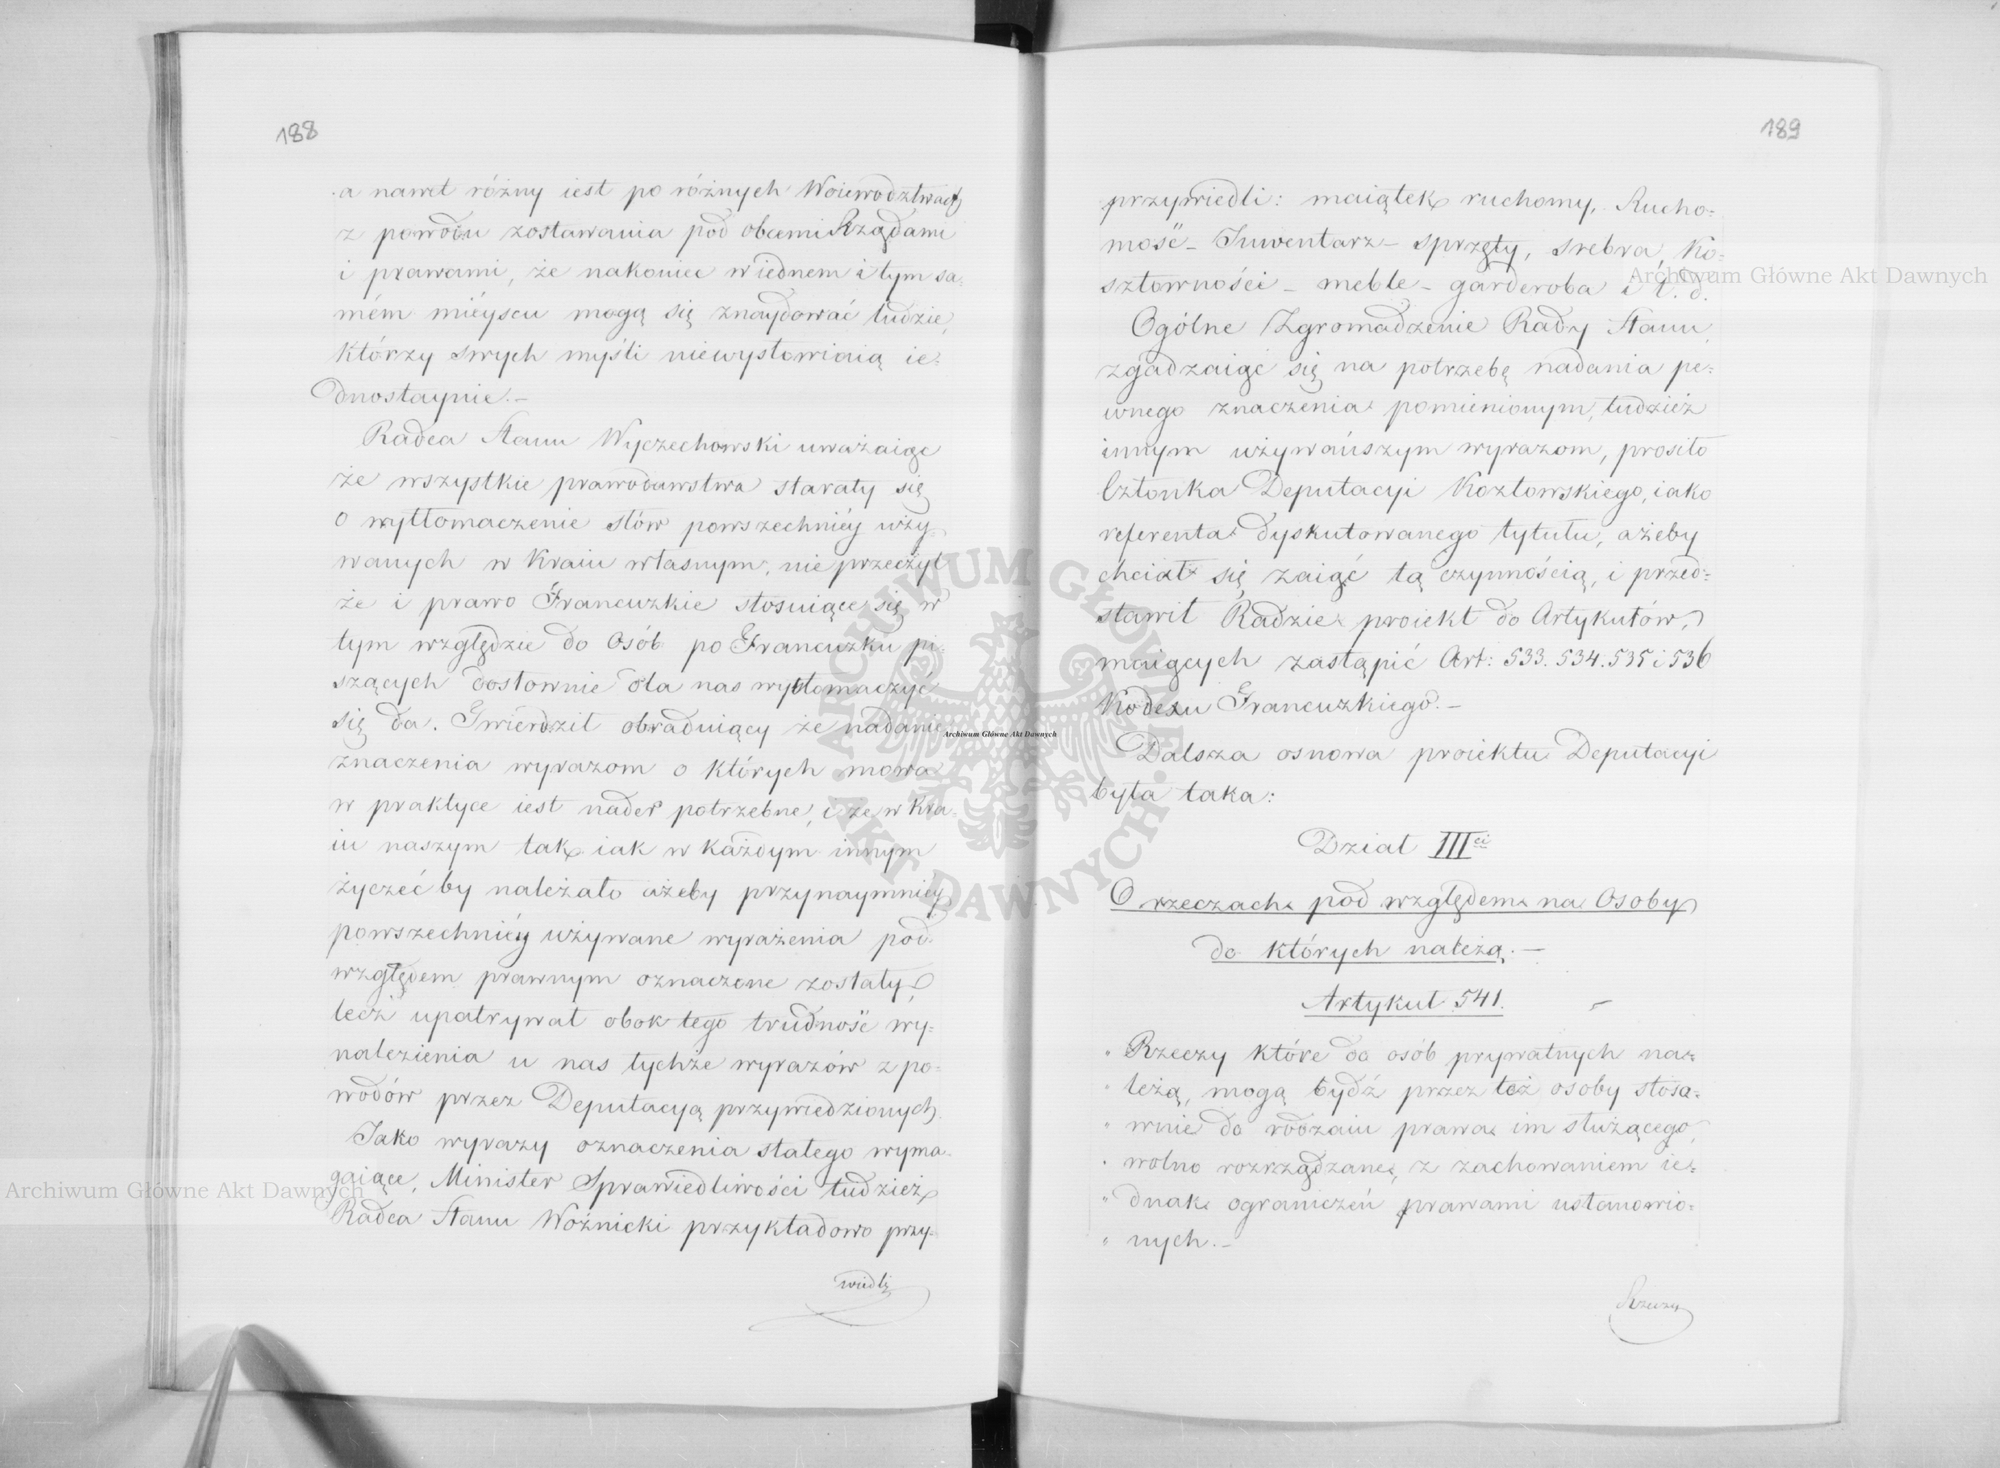 188
a nawet różny iest po różnych Woiewodztwach
z powodu zostawania pod obcemi Rządami
i prawami, że nakoniec w iednem i tym sa-
mém mieyscu mogą się znaydować ludzie,
którzy swych myśli niewysłowiaią ie-
dnostaynie.—
Radca Stanu Wyczechowski uważaiąc
że wszystkie prawodawstwa starały się
o wytłomaczenie słów powszechniéy uży-
wanych w kraiu własnym, nie przeczył
że i prawo Francuzkie stosuiące się w
tym względzie do osób po Francuzku pi-
szących dosłownie dla nas wytłomaczyć
się da. Twierdził obraduiący że nadanie
znaczenia wyrazom o których mowa
w praktyce iest nader potrzebne, i że w kra-
iu naszym tak iak w każdym innym
życzeć by należało ażeby przynaymniéy
powszechniéy używane wyrażenia pod
względem prawnym oznaczone zostały,
lecz upatrywał obok tego trudność wy-
nalezienia u nas tychże wyrazów z po-
wodów przez Deputacyą przywiedzionych.
Jako wyrazy oznaczenia stałego wyma-
gaiące, Minister Sprawiedliwości tudzież
Radca Stanu Woźnicki przykładowo przy-
wiedli
189
przywiedli: maiątek ruchomy, Rucho-
mość – Inwentarz – sprzęty, srebra, Ko-
sztowności – meble – garderoba i t. d.
Ogólne Zgromadzenie Rady Stanu,
zgadzaiąc się na potrzebę nadania pe-
wnego znaczenia pomienionym, tudzież
innym używańszym wyrazom, prosiło
Członka Deputacyi Kozłowskiego, iako
referenta dyskutowanego tytułu, ażeby
chciał się zaiąć tą czynnością, i przed-
stawił Radzie proiekt do Artykułów,
maiących zastąpić Art: 533. 534. 535 i 536
Kodexu Francuzkiego.—
Dalsza osnowa proiektu Deputacyi
była taka:
Dział IIIci
O rzeczach pod względem na Osoby
do których należą.—
Artykuł 541.
" Rzeczy które do osób prywatnych na-
" leżą, mogą bydź przez też osoby stoso-
" wnie do rodzaiu prawa im służącego,
" wolno rozrządzane, z zachowaniem ie-
" dnak ograniczeń prawami ustanowio-
" nych.—
Rzeczy
Archiwum Główne Akt Dawnych
Archiwum Główne Akt Dawnych
Archiwum Główne Akt Dawnych
ARCHIWUM GŁÓWNE AKT DAWNYCH